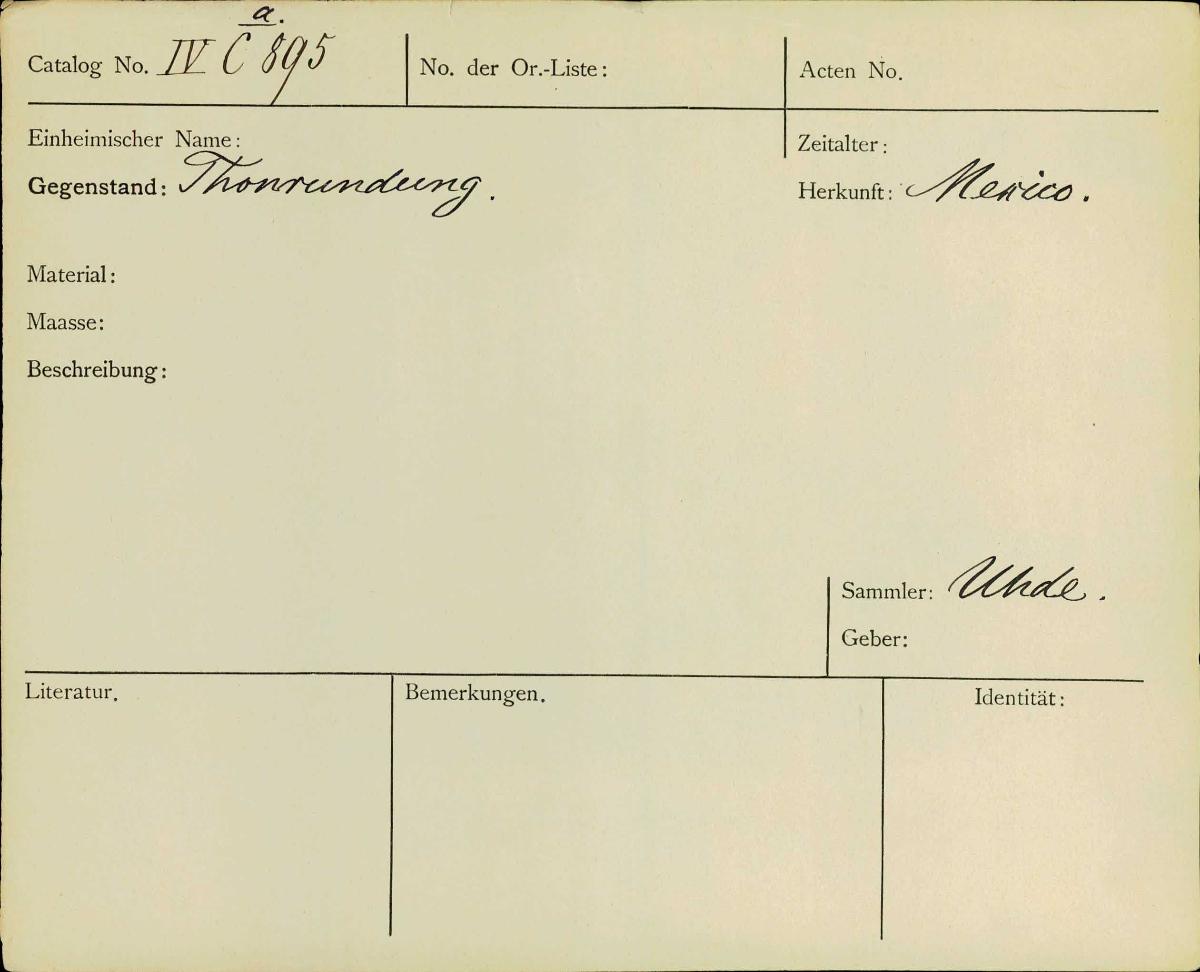 a.
Catalog No. IV C 895
No. der Or.-Liste:
Acten No.
Einheimischer Name:
Zeitalter:
Gegenstand: Thonrundung.
Herkunft: Mexico.
Material:
Maasse:
Beschreibung:
Sammler: Uhde.
Geber:
Literatur.
Bemerkungen.
Identität: